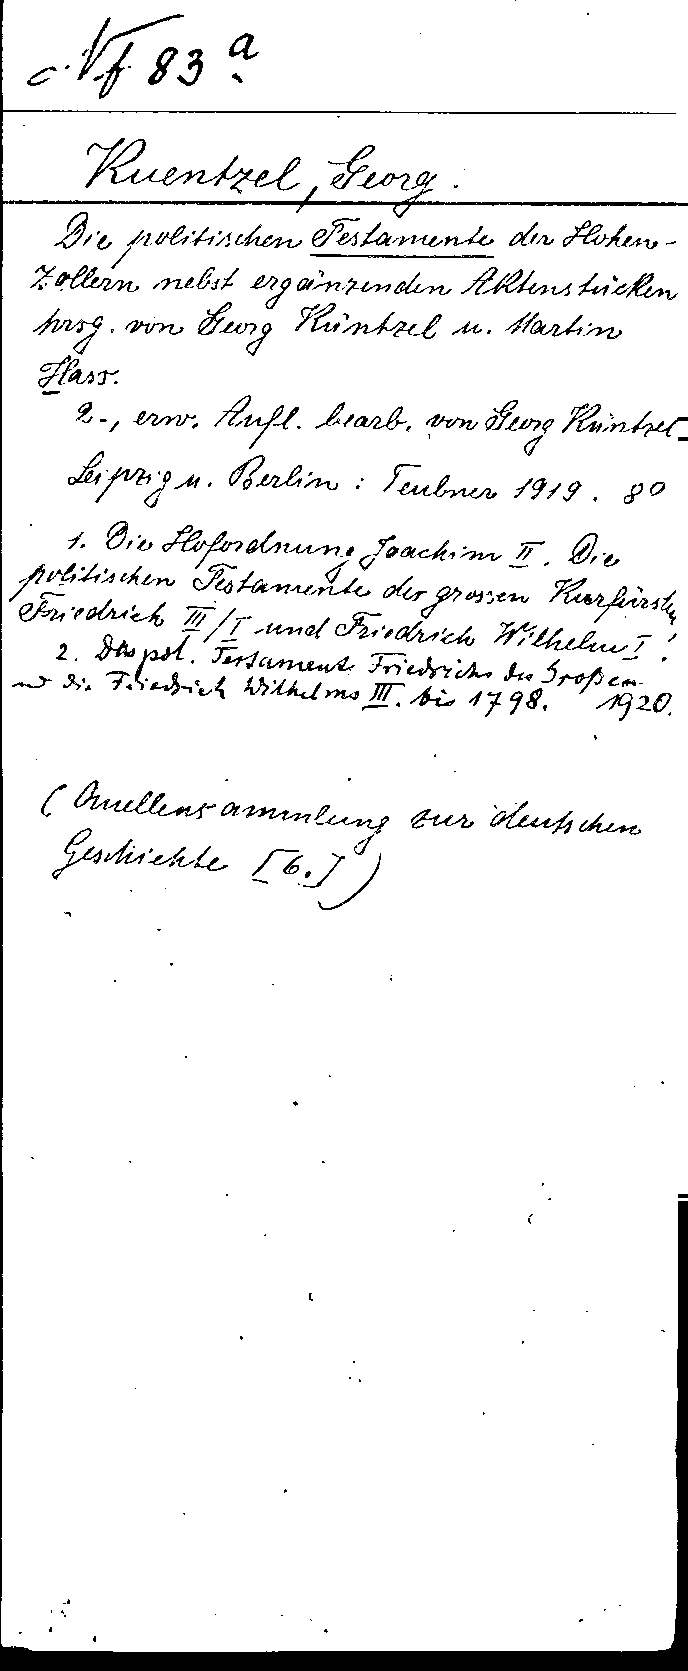 Nf 83 a
Kuentzel, Georg.
Die politischen Testamente der Hohen-
zollern nebst ergänzenden Aktenstücken
hrsg. von Georg Küntzel u. Martin
Hass.
2., erw. Aufl. bearb. von Georg Küntzel
Leipzig u. Berlin : Teubner 1919. 8°
1. Die Hofordnung Joachim II. Die
politischen Testamente des grossen Kurfürsten
Friedrich III/I und Friedrich Wilhelm I.
2. Das pol. Testament Friedrichs des Großen
und die Friedrich Wilhelms III. bis 1798. 1920.
(Quellensammlung zur deutschen
Geschichte [6.])